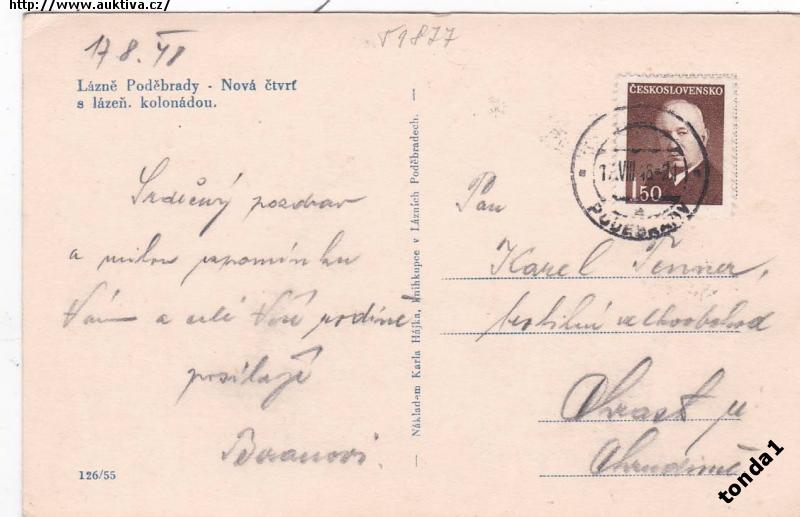 http://www.auktiva.cz/
17 8. 48
V1877
Lázně Poděbrady - Nová čtvrť
s lázeň. kolonádou.
Srdečný pozdrav
a milou vzpomínku
Vám a celé Vaší rodině
posílají
Beranovi.
126/55
Nákladem Karla Hájka, knihkupce v Lázních Poděbradech.
ČESKOSLOVENSKO
1.50
17.VIII.48-21
PODĚBRADY
Pan
Karel Tenner,
textilní velkoobchod
Chrast u
Chrudimě
tonda1